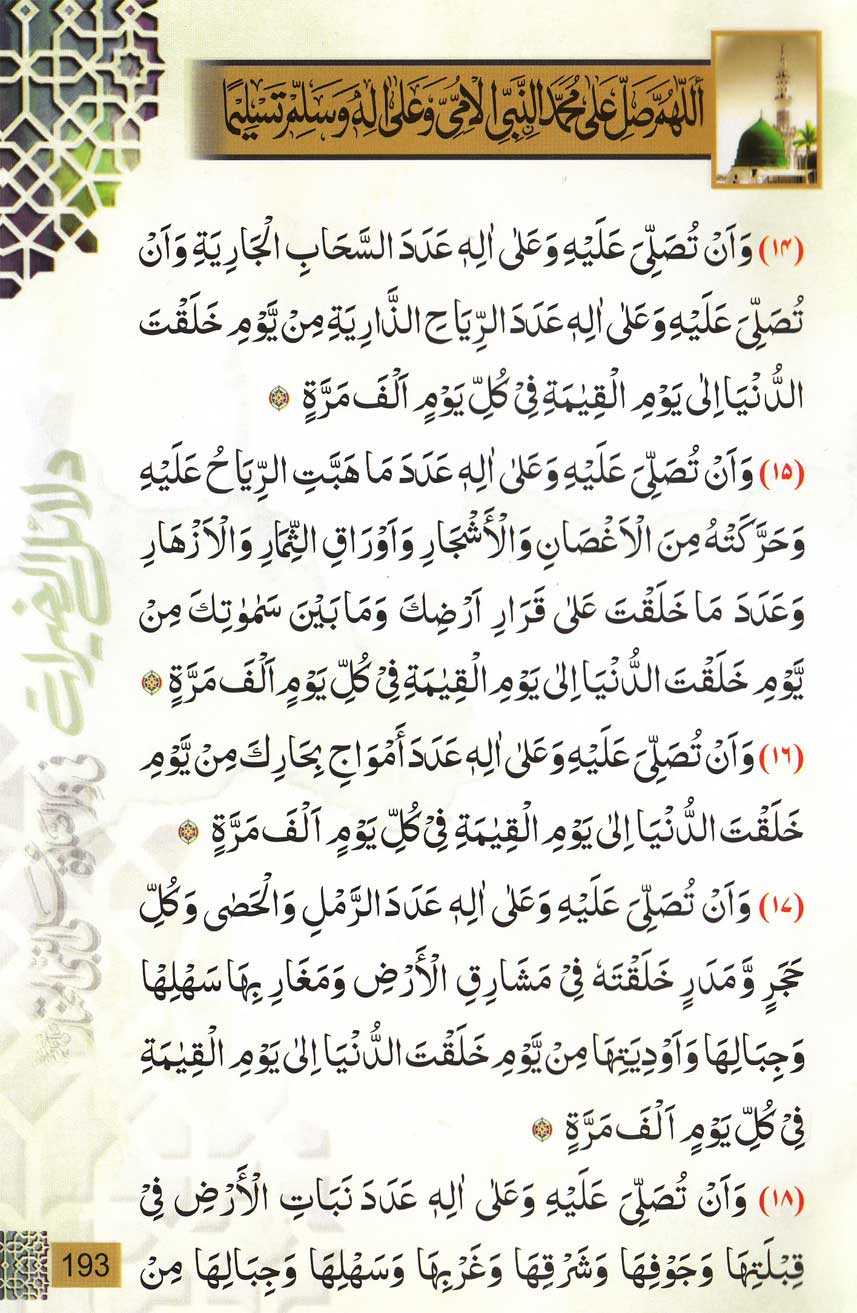 اَللّٰهُمَّ صَلِّ عَلٰى مُحَمَّدِ النَّبِيِّ الْاُمِّيِّ وَعَلٰى اٰلِهٖ وَسَلِّمْ تَسْلِيْمًا
(۱۴) وَاَنْ تُصَلِّيَ عَلَيْهِ وَعَلٰى اٰلِهٖ عَدَدَ السَّحَابِ الْجَارِيَةِ وَاَنْ
تُصَلِّيَ عَلَيْهِ وَعَلٰى اٰلِهٖ عَدَدَ الرِّيَاحِ الذَّارِيَةِ مِنْ يَّوْمِ خَلَقْتَ
الدُّنْيَا اِلٰى يَوْمِ الْقِيٰمَةِ فِيْ كُلِّ يَوْمٍ اَلْفَ مَرَّةٍ
(۱۵) وَاَنْ تُصَلِّيَ عَلَيْهِ وَعَلٰى اٰلِهٖ عَدَدَ مَا هَبَّتِ الرِّيَاحُ عَلَيْهِ
وَحَرَّكَتْهُ مِنَ الْاَغْصَانِ وَالْأَشْجَارِ وَاَوْرَاقِ الثِّمَارِ وَالْاَزْهَارِ
وَعَدَدَ مَا خَلَقْتَ عَلٰى قَرَارِ اَرْضِكَ وَمَا بَيْنَ سَمٰوٰتِكَ مِنْ
يَّوْمِ خَلَقْتَ الدُّنْيَا اِلٰى يَوْمِ الْقِيٰمَةِ فِيْ كُلِّ يَوْمٍ اَلْفَ مَرَّةٍ
(۱۶) وَاَنْ تُصَلِّيَ عَلَيْهِ وَعَلٰى اٰلِهٖ عَدَدَ أَمْوَاجِ بِحَارِكَ مِنْ يَّوْمِ
خَلَقْتَ الدُّنْيَا اِلٰى يَوْمِ الْقِيٰمَةِ فِيْ كُلِّ يَوْمٍ اَلْفَ مَرَّةٍ
(۱۷) وَاَنْ تُصَلِّيَ عَلَيْهِ وَعَلٰى اٰلِهٖ عَدَدَ الرَّمْلِ وَالْحَصٰى وَكُلِّ
حَجَرٍ وَّمَدَرٍ خَلَقْتَهٗ فِيْ مَشَارِقِ الْأَرْضِ وَمَغَارِبِهَا سَهْلِهَا
وَجِبَالِهَا وَاَوْدِيَتِهَا مِنْ يَّوْمِ خَلَقْتَ الدُّنْيَا اِلٰى يَوْمِ الْقِيٰمَةِ
فِيْ كُلِّ يَوْمٍ اَلْفَ مَرَّةٍ
(۱۸) وَاَنْ تُصَلِّيَ عَلَيْهِ وَعَلٰى اٰلِهٖ عَدَدَ نَبَاتِ الْأَرْضِ فِيْ
قِبْلَتِهَا وَجَوْفِهَا وَشَرْقِهَا وَغَرْبِهَا وَسَهْلِهَا وَجِبَالِهَا مِنْ
دلائل الخيرات
193